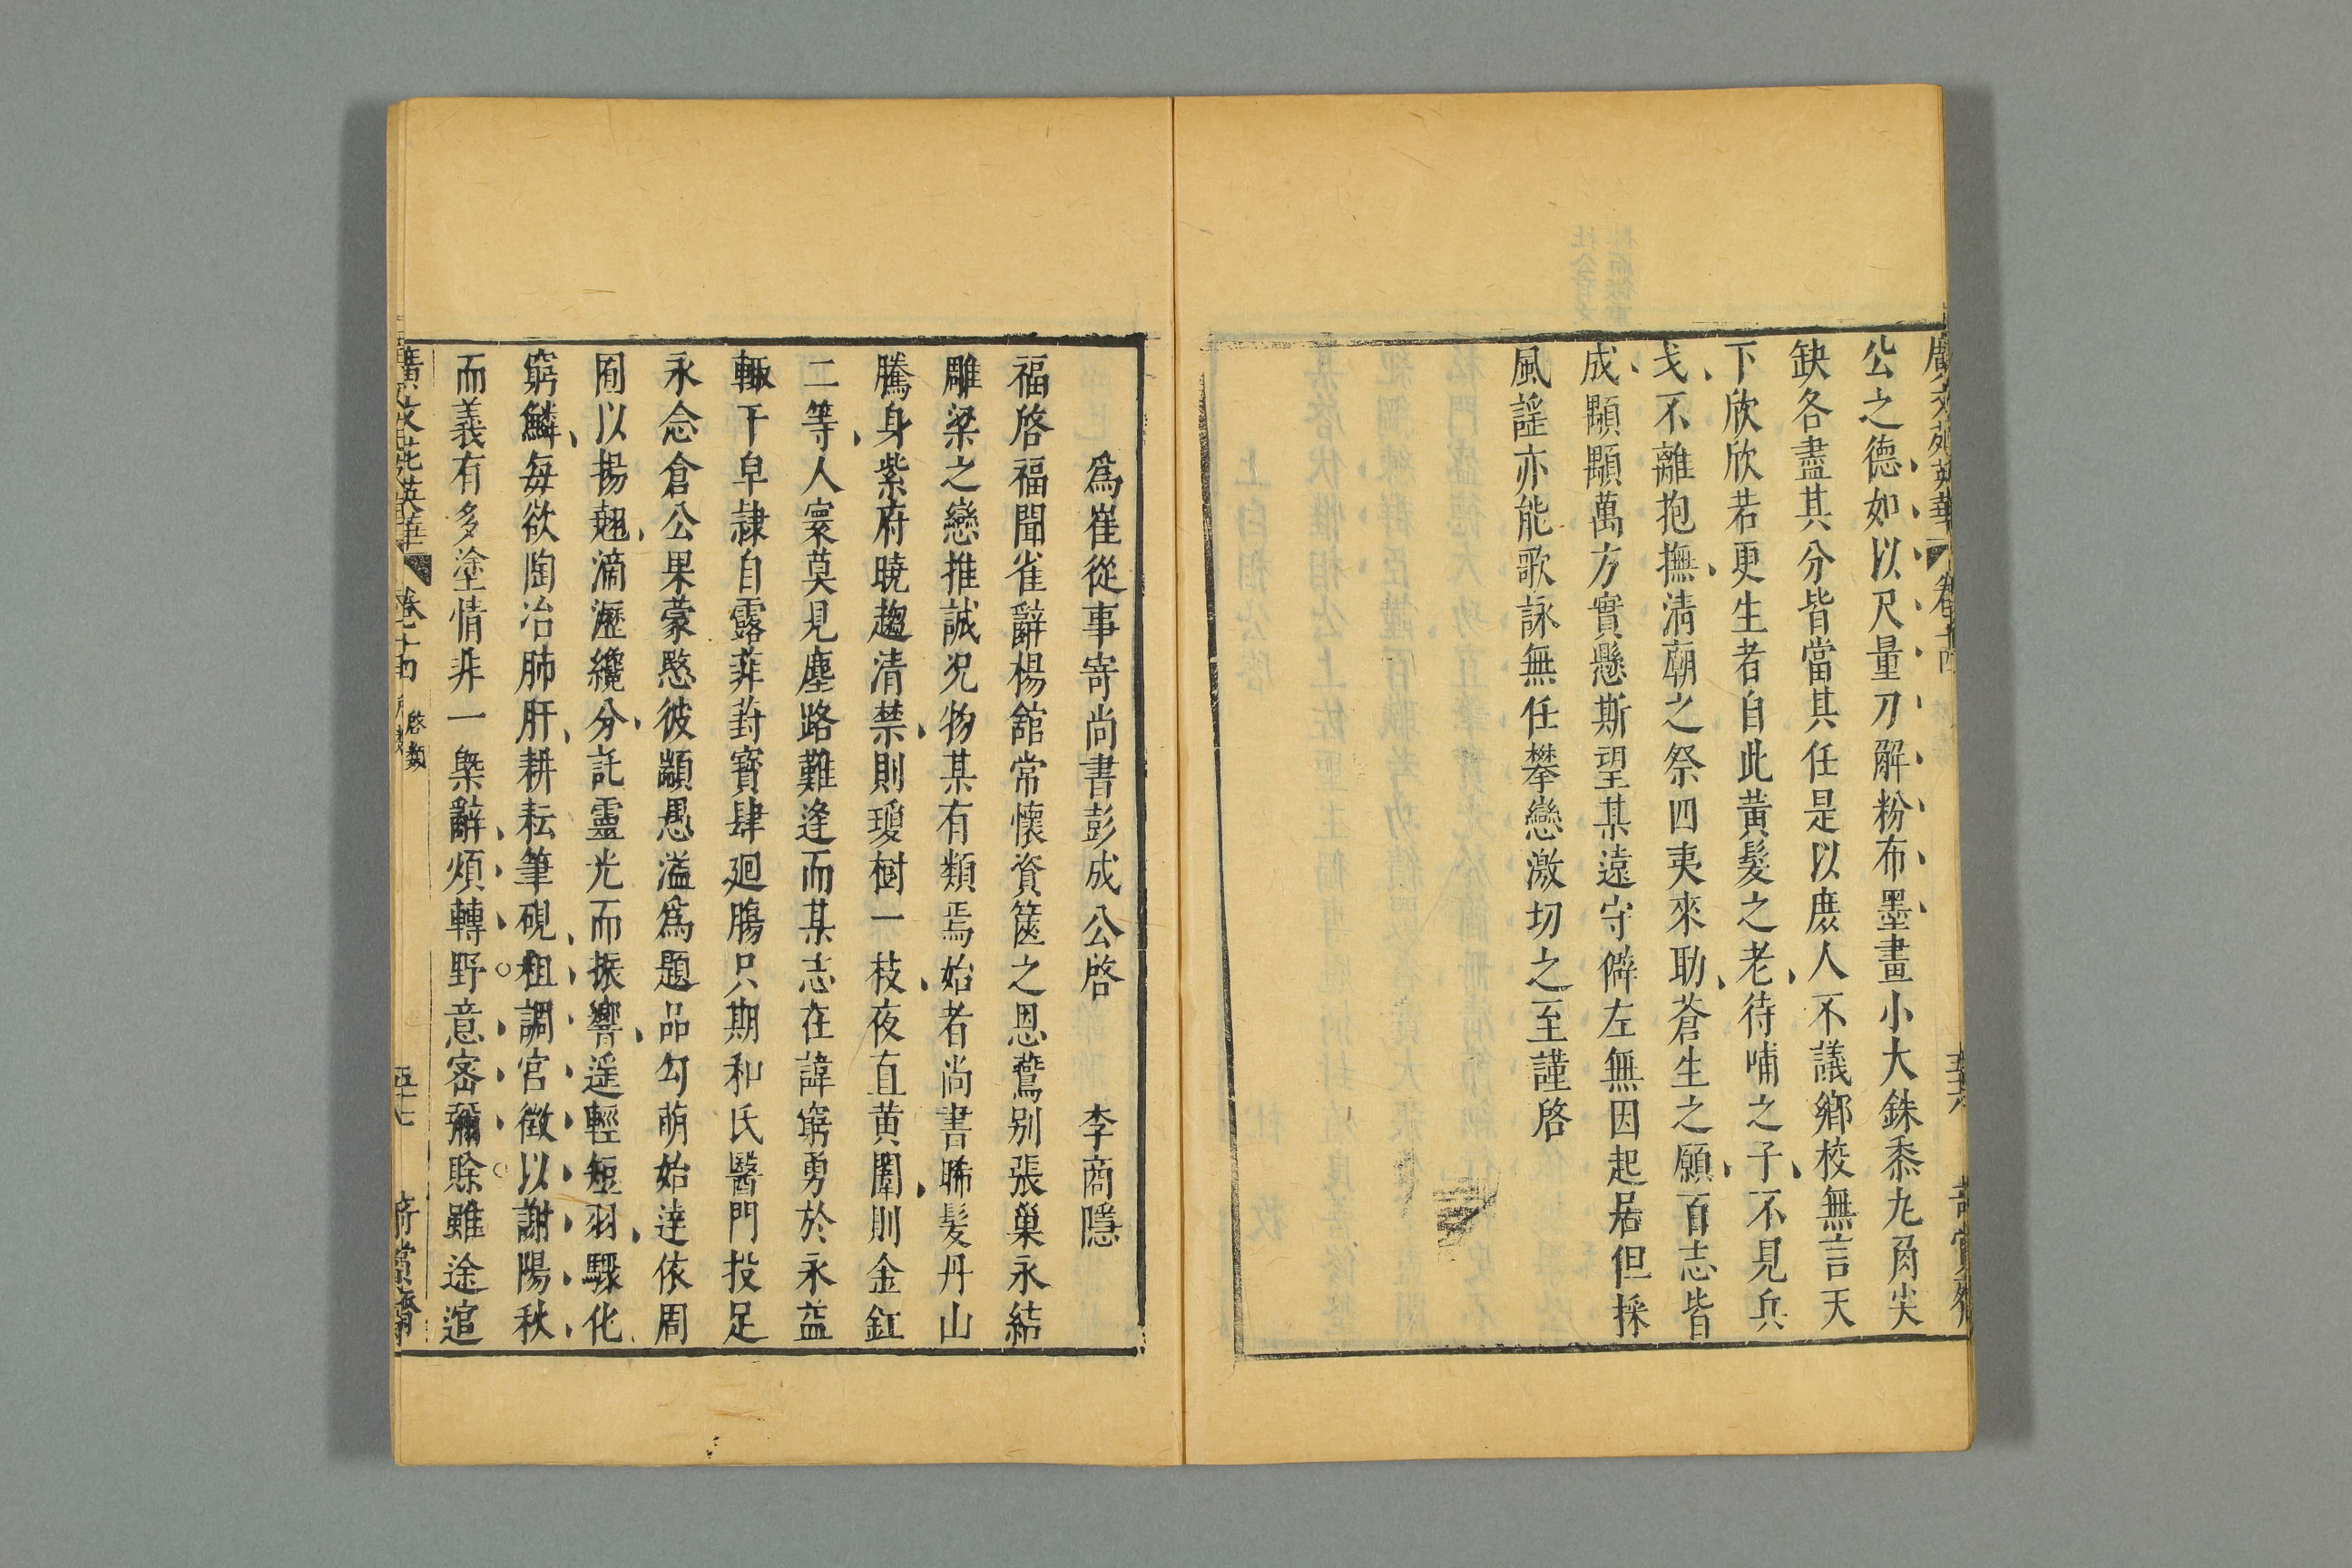 廣文苑英華 卷十四
公之德如以尺量刀解粉布墨畫小大銖黍九角尖
缺各盡其分皆當其任是以庶人不議鄉校無言天
下欣欣若更生者自此黃髮之老待哺之子不見兵
戈不離抱撫清廟之祭四夷來助蒼生之願百志皆
成顒顒萬方實懸斯望某遠守僻左無因起居但採
風謠亦能歌詠無任攀戀激切之至謹啓
爲崔從事寄尚書彭成公啓 李商隱
福啓福聞雀辭楊舘常懷資篋之恩鷰别張巢永結
雕梁之戀推誠况物某有類焉始者尚書晞髮丹山
騰身紫府曉趨清禁則瓊樹一枝夜直黄闈則金釭
二等人寰莫見塵路難逢而某志在諱窮勇於永益
輙干皁隷自露菲葑寳肆廻腸只期和氏醫門投足
永念倉公果蒙愍彼顓愚溢爲題品勾萌始達依周
囿以揚翹滴瀝纔分託靈光而振響遥輕短羽驟化
窮鱗每欲陶冶肺肝耕耘筆硯粗調宮徵以謝陽秋
而義有多塗情非一槩辭煩轉野意宻彌賖雖途逭
廣文苑英華 卷十四 啓類 五十七 奇賞齋